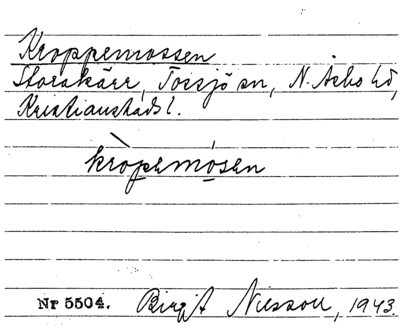 Kroppemossen
Storakärr, Tossjö sn, N. Åsbo hd,
Kristianstads l.
kròpemósen
Nr 5504. Birgit Nilsson, 1943.